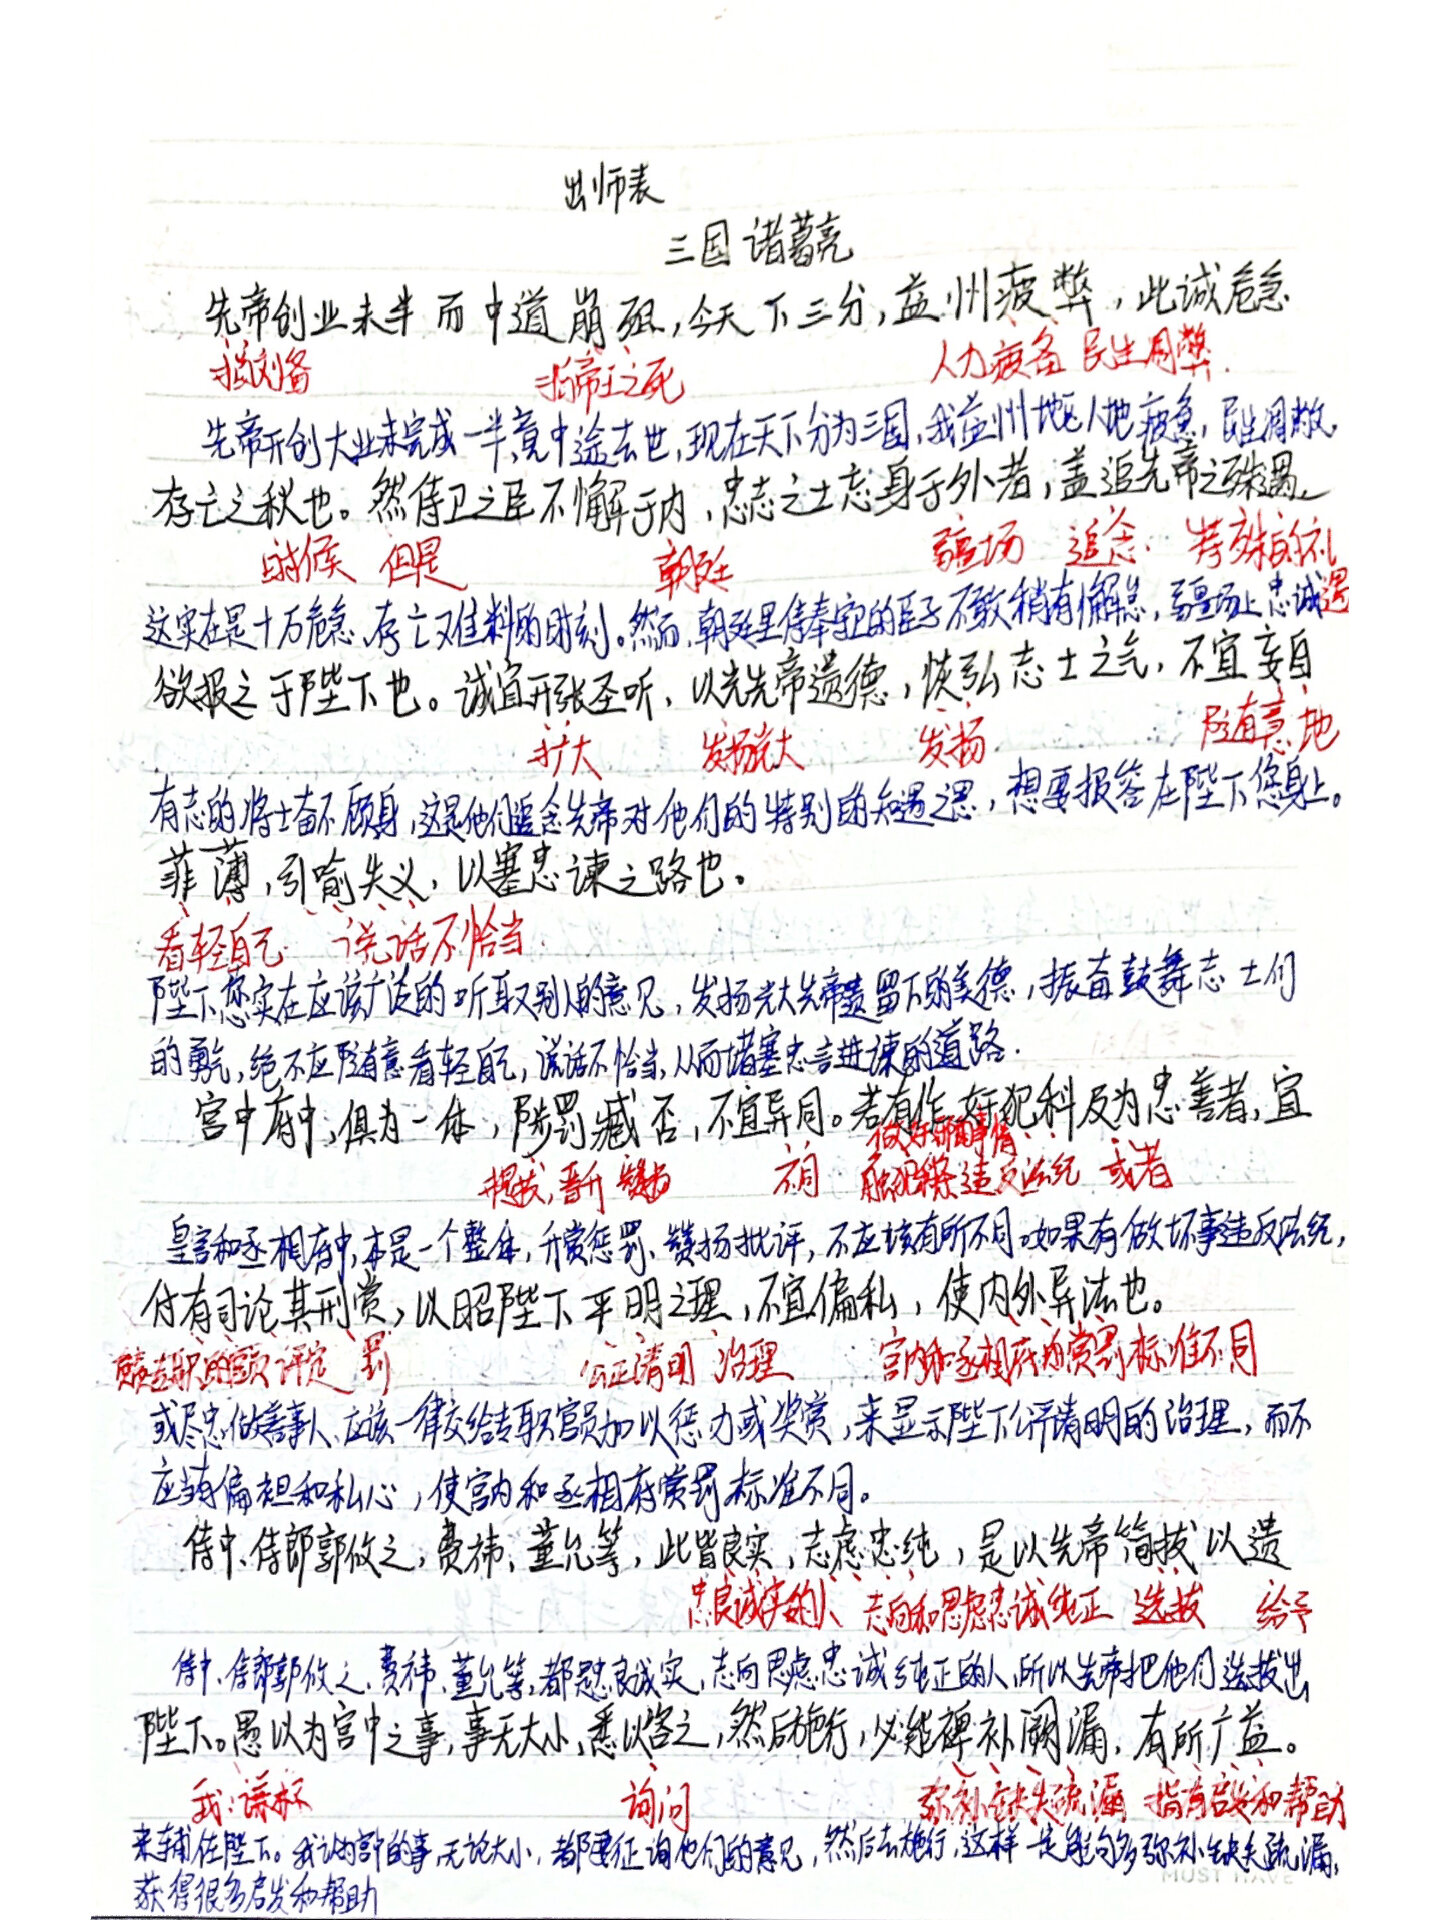 出师表
三国 诸葛亮
先帝创业未半而中道崩殂，今天下三分，益州疲弊，此诚危急
指刘备 指帝王之死 人力疲惫 民生凋弊.
先帝开创大业未完成一半竟中途去世，现在天下分为三国，我益州地区人地疲惫，民生凋敝，
存亡之秋也。然侍卫之臣不懈于内，忠志之士忘身于外者，盖追先帝之殊遇，
时候 但是 朝廷 疆场 追念. 特殊的礼遇
这实在是十万危急、存亡难料的时刻。然而，朝廷里侍奉的臣子不敢稍有懈怠，疆场上忠诚
欲报之于陛下也。诚宜开张圣听，以光先帝遗德，恢弘志士之气，不宜妄自
扩大 发扬光大 发扬 随意地
有志的将士奋不顾身，这是他们追念先帝对他们的特别的知遇之恩，想要报答在陛下您身上。
菲薄，引喻失义，以塞忠谏之路也。
看轻自己 说话不恰当
陛下您实在应该广泛的听取别人的意见，发扬光大先帝遗留下的美德，振奋鼓舞志士们
的勇气，绝不应随意看轻自己，说话不恰当，从而堵塞忠言进谏的道路.
宫中府中，俱为一体，陟罚臧否，不宜异同。若有作奸犯科及为忠善者，宜
提拔，晋升 赞扬 不同 做奸邪事情 违反法纪 或者
皇宫和丞相府中，本是一个整体，升赏惩罚、赞扬批评，不应该有所不同。如果有做坏事违反法纪，
付有司论其刑赏，以昭陛下平明之理，不宜偏私，使内外异法也。
负责专职的官员 评定 罚 公正清明 治理 宫内和丞相府内赏罚标准不同
或尽忠做善事人、应该一律交给专职官员加以惩办或奖赏，来显示陛下公平清明的治理，而不
应当有偏袒和私心，使宫内和丞相府赏罚标准不同。
侍中、侍郎郭攸之，费祎，董允等，此皆良实，志虑忠纯，是以先帝简拔以遗
忠良诚实的人 志向和思虑忠诚纯正 选拔 给予
侍中、侍郎郭攸之、费祎、董允等，都是忠良诚实，志向思虑忠诚纯正的人，所以先帝把他们选拔出
陛下。愚以为宫中之事，事无大小，悉以咨之，然后施行，必能裨补阙漏，有所广益。
我：谦称 询问 弥补缺失疏漏 指有启发和帮助
来辅佐陛下。我认为宫中的事，无论大小，都要征询他们的意见，然后去施行，这样一定能够多弥补缺失疏漏，
获得很多启发和帮助
MUST HAVE